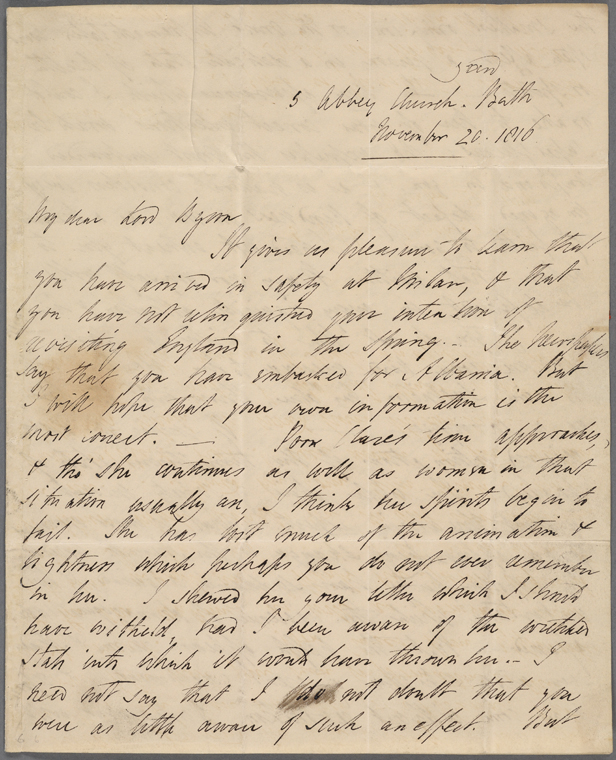 yard
5 Abbey Church. Bath
November 20. 1816
My dear Lord Byron,
It gives us pleasure to learn that
you have arrived in safety at Milan, & that
you have not relinquished your intention of
revisiting England in the Spring. — The Newspapers
say that you have embarked for Albania. But
I will hope that your own information is the
most correct. — Poor Clare's time approaches,
& tho' she continues as well as women in that
situation usually are, I think her spirits began to
fail. She has lost much of the animation &
lightness which perhaps you do not ever remember
in her. I shewed her your letter which I should
have witheld, had I been aware of the wretched
state into which it would have thrown her. — I
need not say that I do not doubt that you
were as little aware of such an effect. But